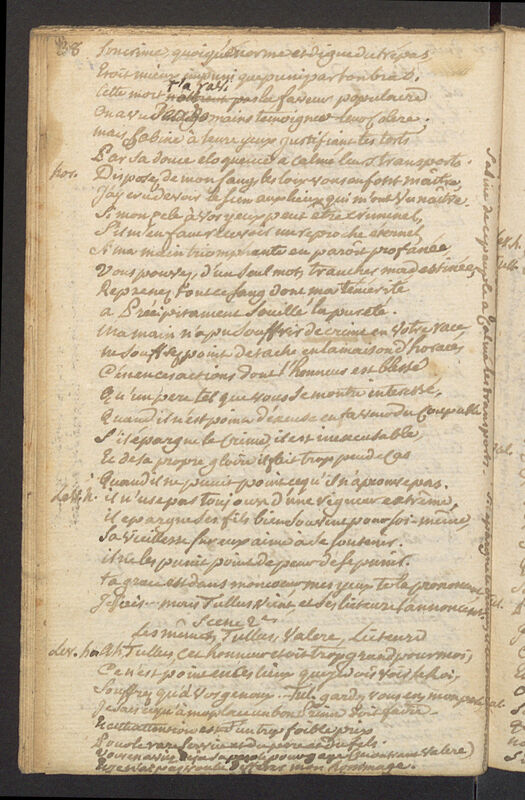 38
Son crime, quoiqu'énorme et digne du trépas
Etoit mieux impuni que puni par ton bras.
Cette mort pas la faveur populaire
On a vu mains temoigner leur colere.
mais Sabine à leurs yeux justifiant tes torts
Par sa douce eloquence a calmé leurs transports.
hor. Disposez de mon sang, les loix vous en font maître,
J'ay cru devoir le sien aux lieux qui m'ont vu naître.
Si mon zele à vos yeux peut être criminel,
S'il m'en faut recevoir un reproche eternel
Si ma main triomphante en paroît profanée
Vous pouvez, d'un seul mot, trancher ma destinée,
Reprenez tout ce sang dont ma témérité
a Précipitament souillé la pureté.
Ma main n'a pu souffrir de crime en votre race
ne souffrez point de tache en la maison d'horace,
C'est en ces actions dont l'honneur est blessé
Qu'un pere tel que vous se montre interessé,
Quand il n'est point d'excuse en faveur du coupable
S'il epargne le crime il est inexcusable,
Et de sa propre gloire il fait trop peu de cas
Quand il ne punit point ce qu'il n'aprouve pas.
il n'use pas toujours d'une rigueur extrême,
il epargne ses fils bien souvent pour soi-même
Sa vieillesse sur eux aime à se soutenir.
il ne les punit point de peur de se punir.
ta grace est dans mon coeur mes yeux te la prononcent
Je vois - mais Tulles vient et ses licteurs l'annoncent
Scene 2e
Les mêmes, Tulles, Valere, Licteurs
Ah Tulles, cet honneur etoit trop grand pour moi,
Ce n'est point en ces lieux que je dois voir le Roi,
Souffrez qu'à vos genoux
Je sais ce qu'à ma place un bon Prince doit faire
d'un trop foible prix
Pour les rares services du pere et du fils.
mon hommage.
Sabine de ce peuple a calmé les transports.